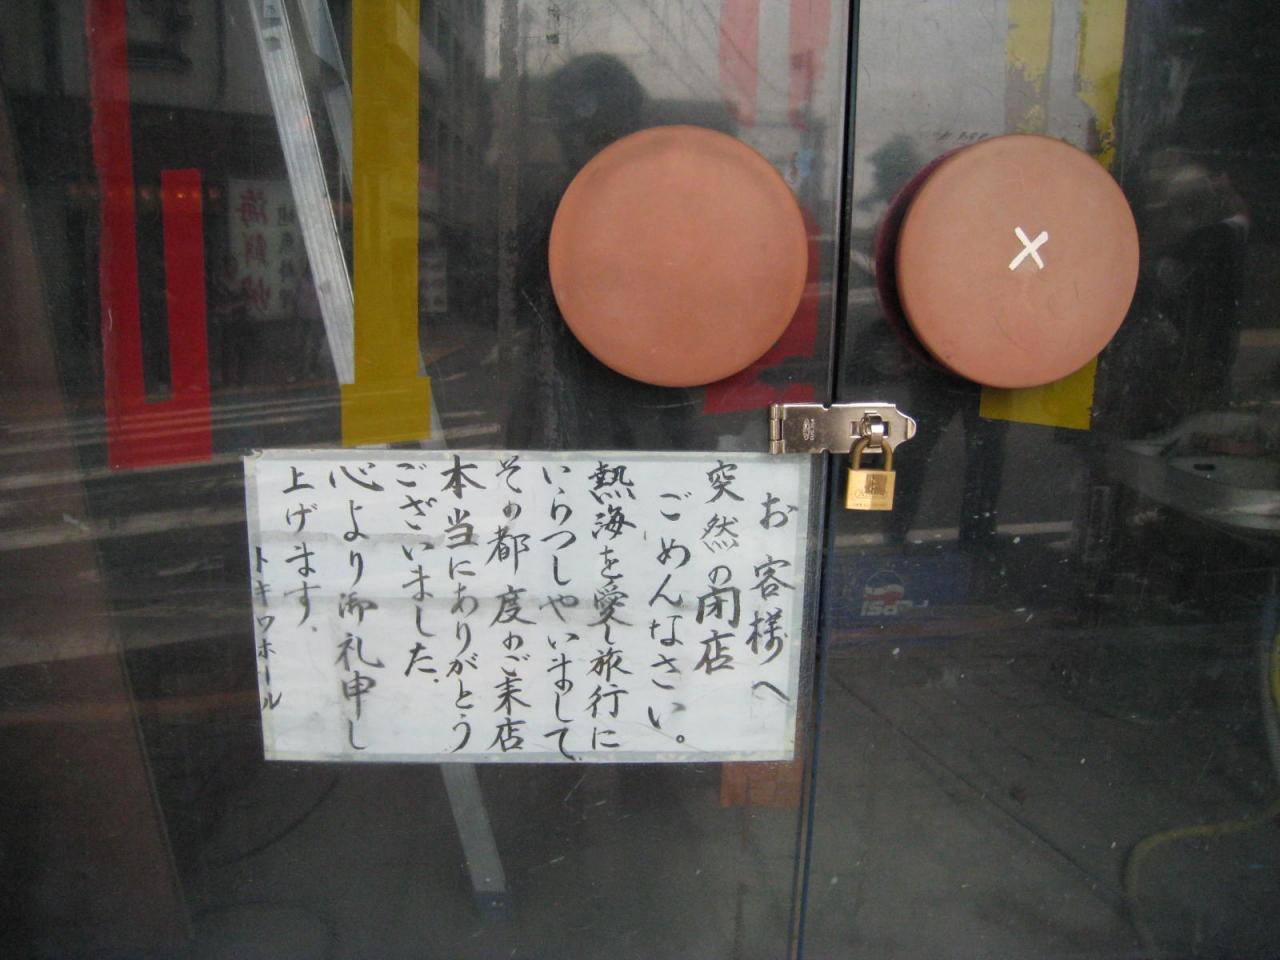 お客様へ
突然の閉店
ごめんなさい。
熱海を愛し旅行に
いらっしゃいまして
その都度のご来店
本当にありがとう
ございました。
心より御礼申し
上げます。
トキワホール
PEPSI